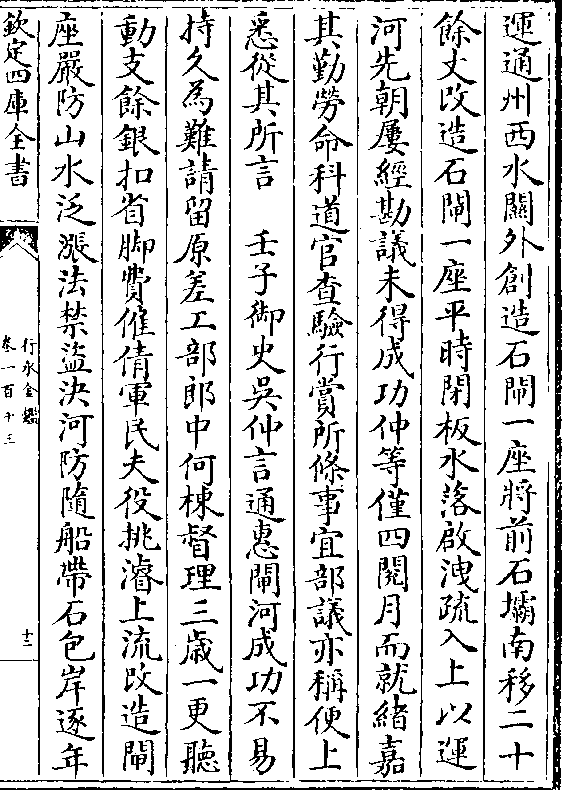 運通州西水關外創造石閘一座將前石壩南移二十
餘丈改造石閘一座平時閉板水落啟洩疏入上以運
河先朝屢經勘議未得成功仲等僅四閱月而就緒嘉
其勤勞命科道官查驗行賞所條事宜部議亦稱便上
悉從其所言　壬子御史吳仲言通惠閘河成功不易
持久為難請留原差工部郎中何棟督理三歲一更聽
動支餘銀扣省脚費僱倩軍民夫役挑濬上流改造閘
座嚴防山水泛漲法禁盜決河防隨船帶石包岸逐年
欽定四庫全書
行水金鑑
卷一百十三
十二